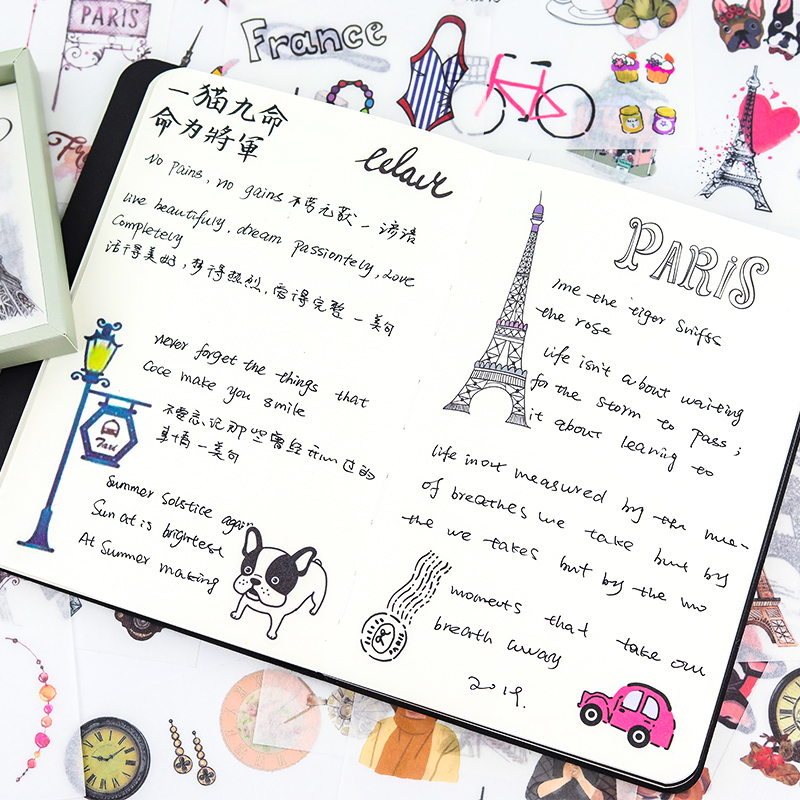 PARIS
France
一猫九命
命为將軍
eclair
No pains, no gains 不劳无获 一 谚语
live beautifuly, dream passiontely, love
Completely
活得美好，梦得热烈，爱得完整 一 美句
never forget the things that
Coce make you smile
不要忘记那些曾经
事情 一 美句
Taxi
Summer Solstice again
Sun at is brightese
At Summer making
PARIS
the tiger Sniffs
the rose
Life isn't about waiting
for the storm to pass;
it about learing to
life in out measured by the nu-
of breathes we take but by
the we takes but by the mo
moments that take our
breath away
2019.
PARIS